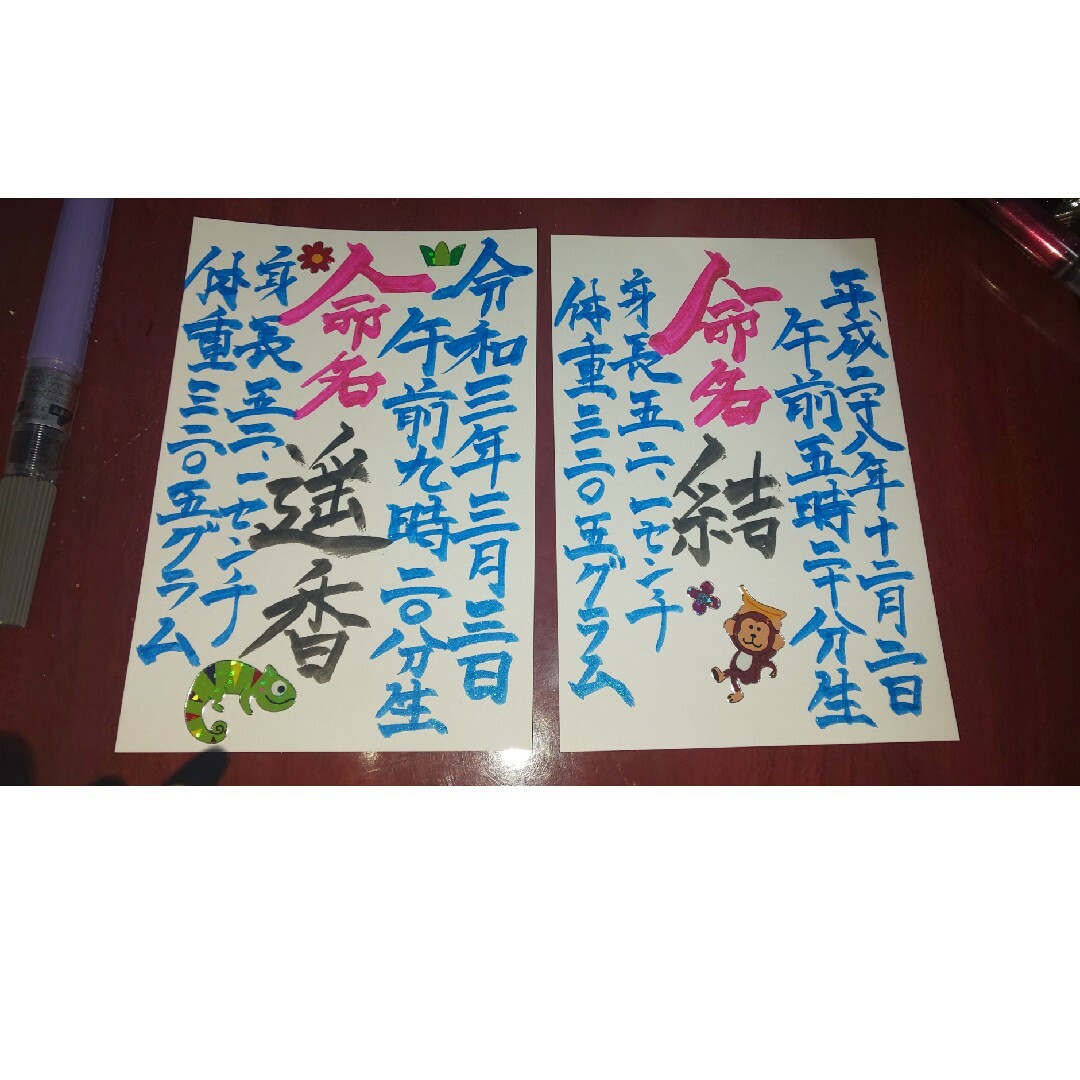 令和三年三月三日
午前九時二〇分生
命名
遥香
身長五二、一センチ
体重三二〇五グラム
平成二十八年十二月二日
午前五時二十分生
命名
結
身長五二、一センチ
体重三二〇五グラム